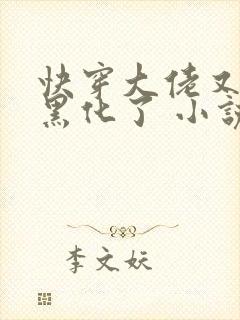 快穿大佬又
黑化了 小说
李文妖